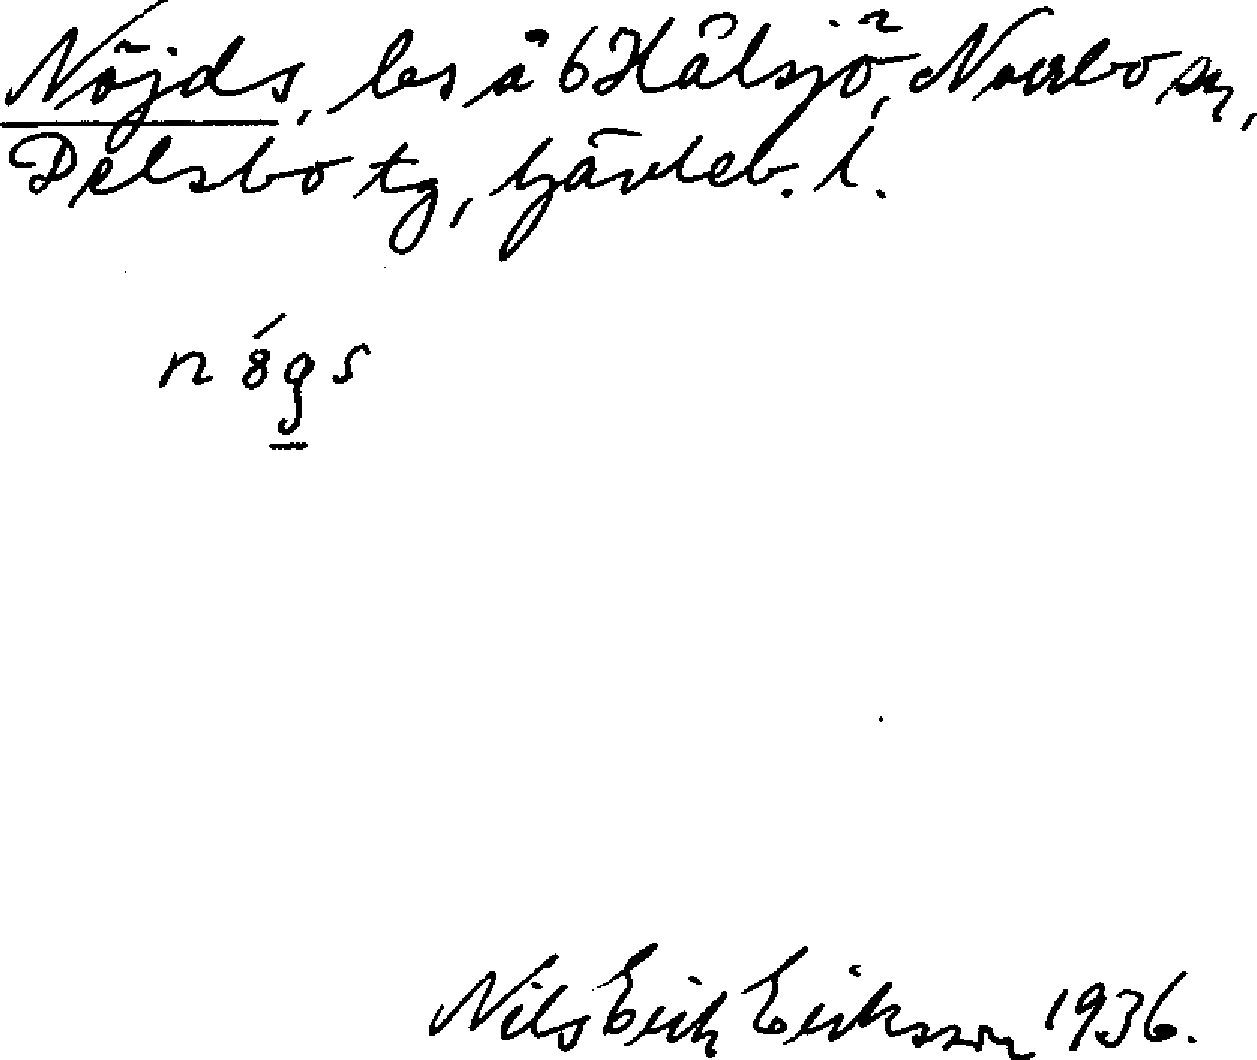 Nöjds, bes å 6 Hålsjö, Norrbo sn,
Delsbo tg, Gävleb. l.
Nils Erik Eriksson 1936.